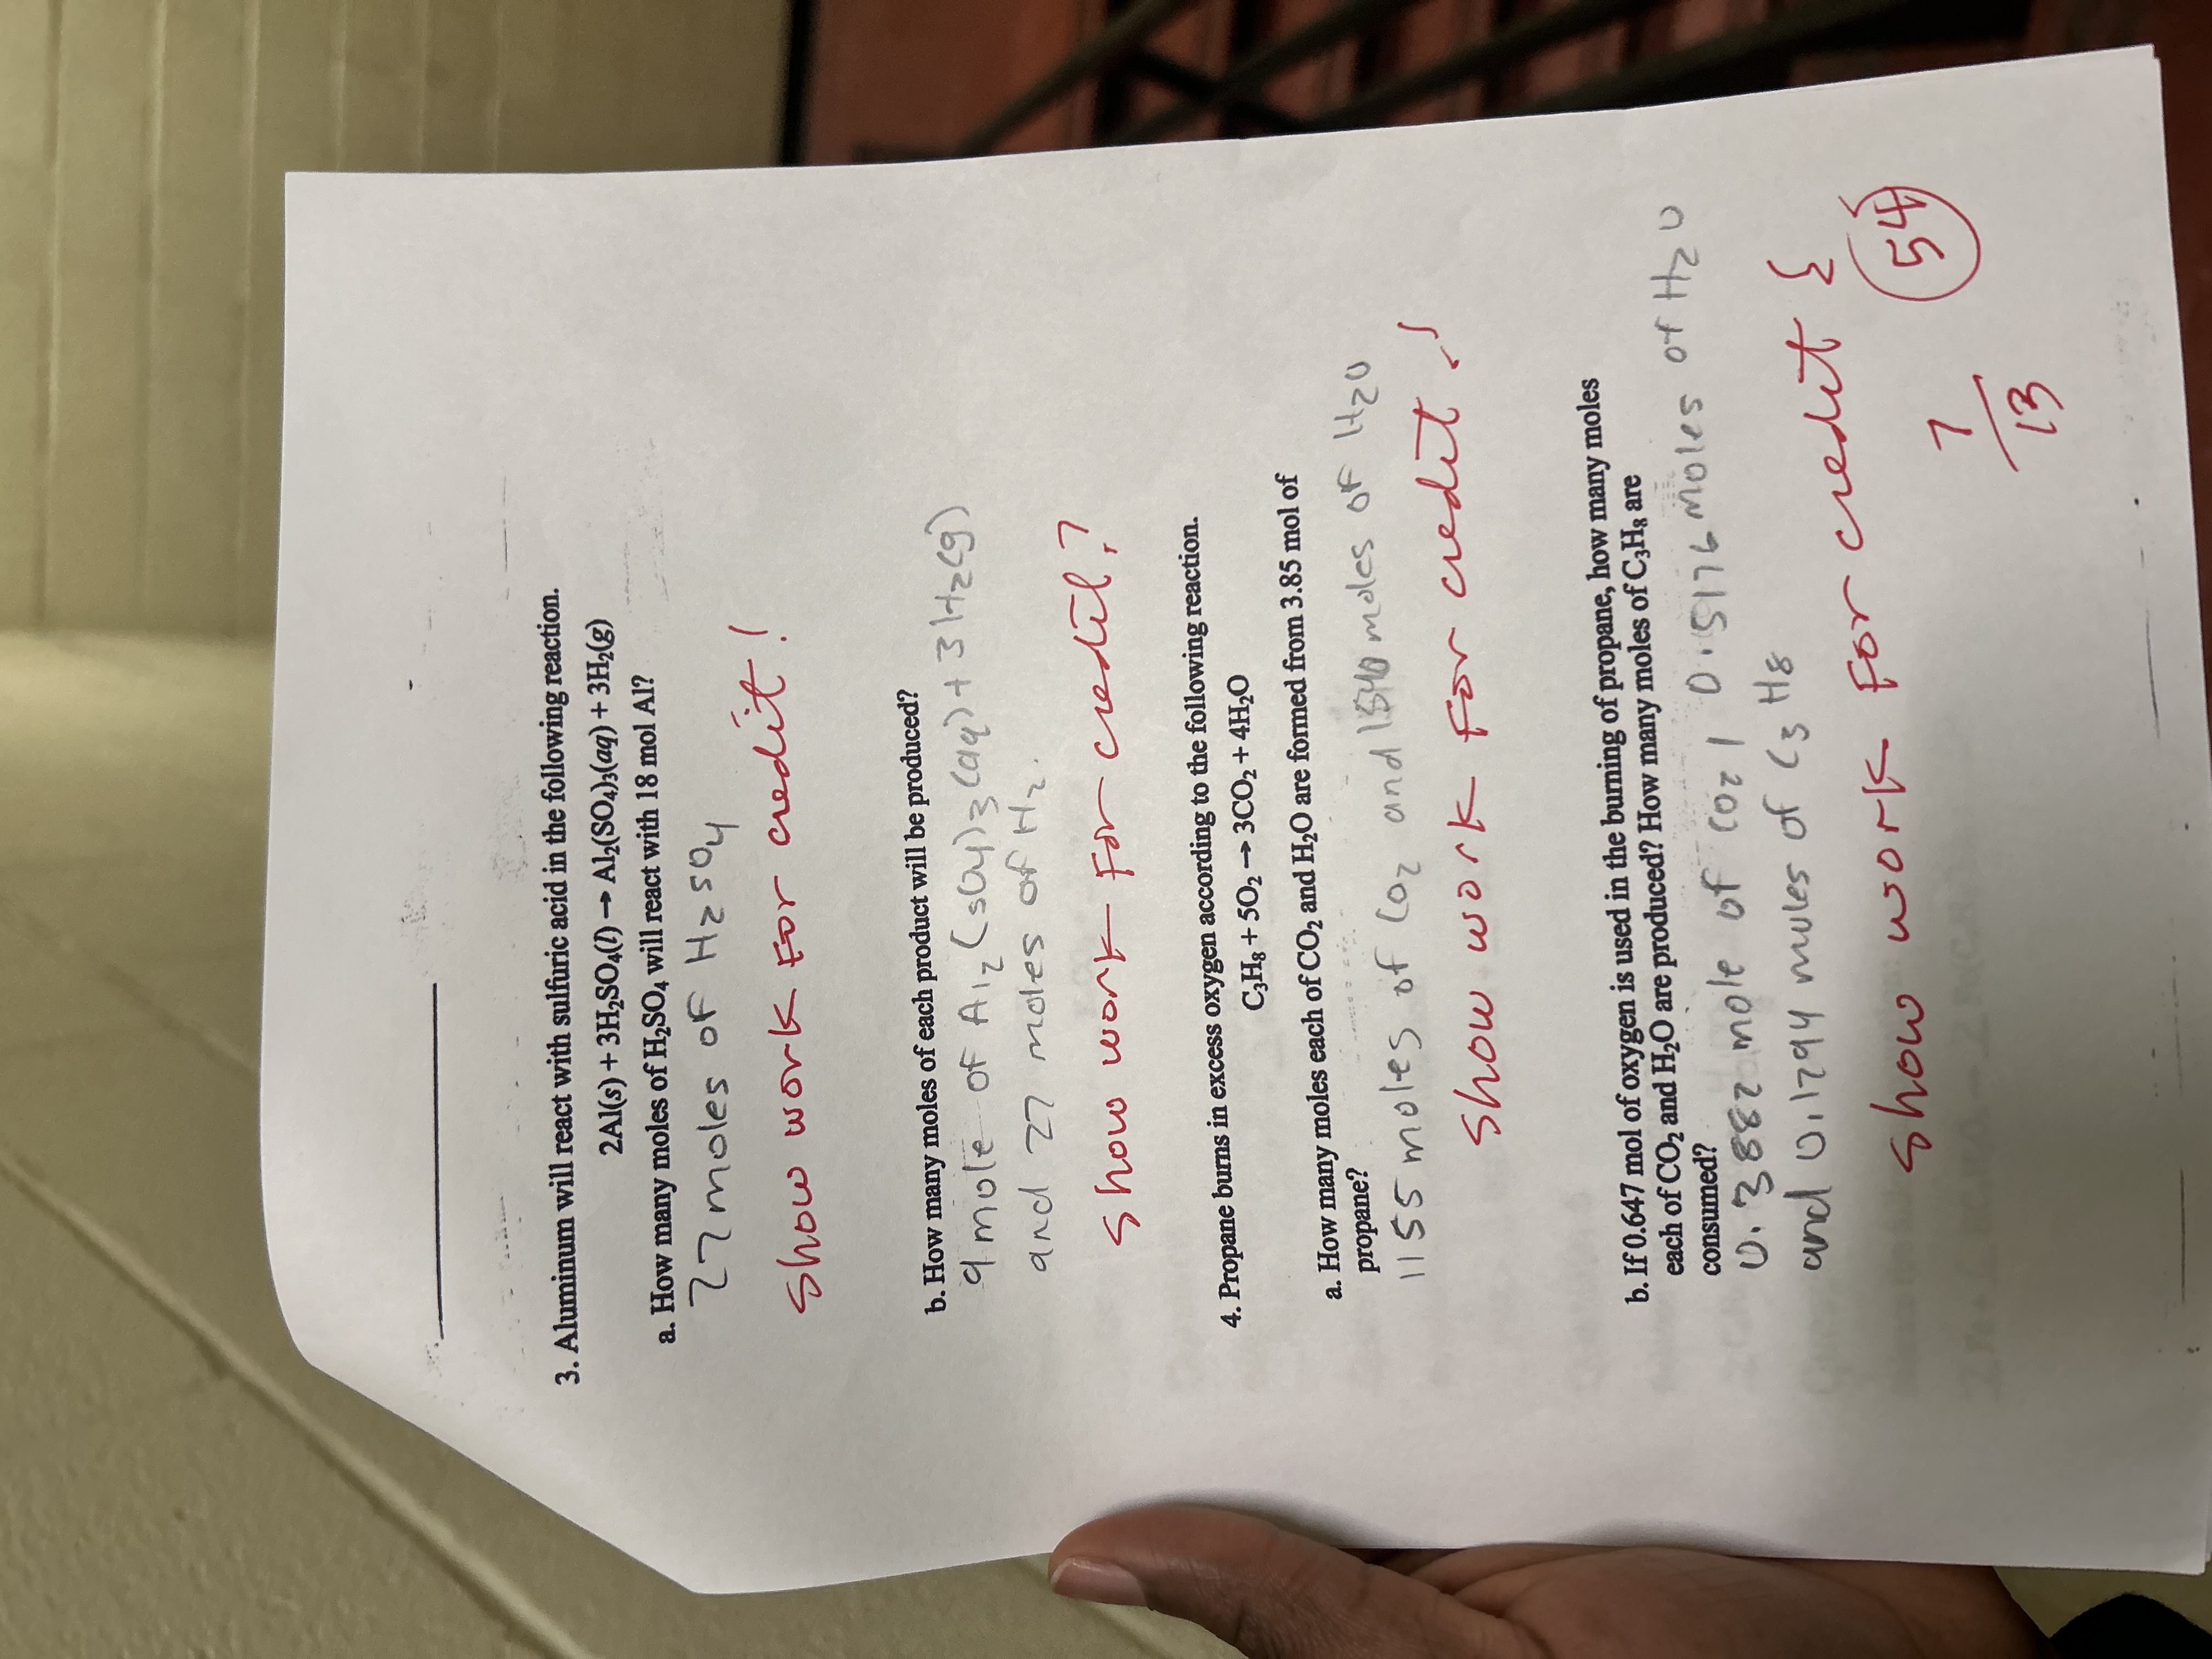 3. Aluminum will react with sulfuric acid in the following reaction.
2Al(s) + 3H₂SO₄(l) → Al₂(SO₄)₃(aq) + 3H₂(g)
a. How many moles of H₂SO₄ will react with 18 mol Al?
27 moles of H₂SO₄
Show work For credit!
b. How many moles of each product will be produced?
9 mole of Al₂(SO4)₃(aq) + 3H₂(g)
and 27 moles of H₂.
Show work For credit!
4. Propane burns in excess oxygen according to the following reaction.
C₃H₈ + 5O₂ → 3CO₂ + 4H₂O
a. How many moles each of CO₂ and H₂O are formed from 3.85 mol of
propane?
1155 moles of CO₂ and 1540 moles of H₂O
Show work For credit!
b. If 0.647 mol of oxygen is used in the burning of propane, how many moles
each of CO₂ and H₂O are produced? How many moles of C₃H₈ are
consumed?
0.3882 mole of CO₂, 0.5176 moles of H₂O
and 0.1294 moles of C₃H₈
Show work For credit
7/13
54